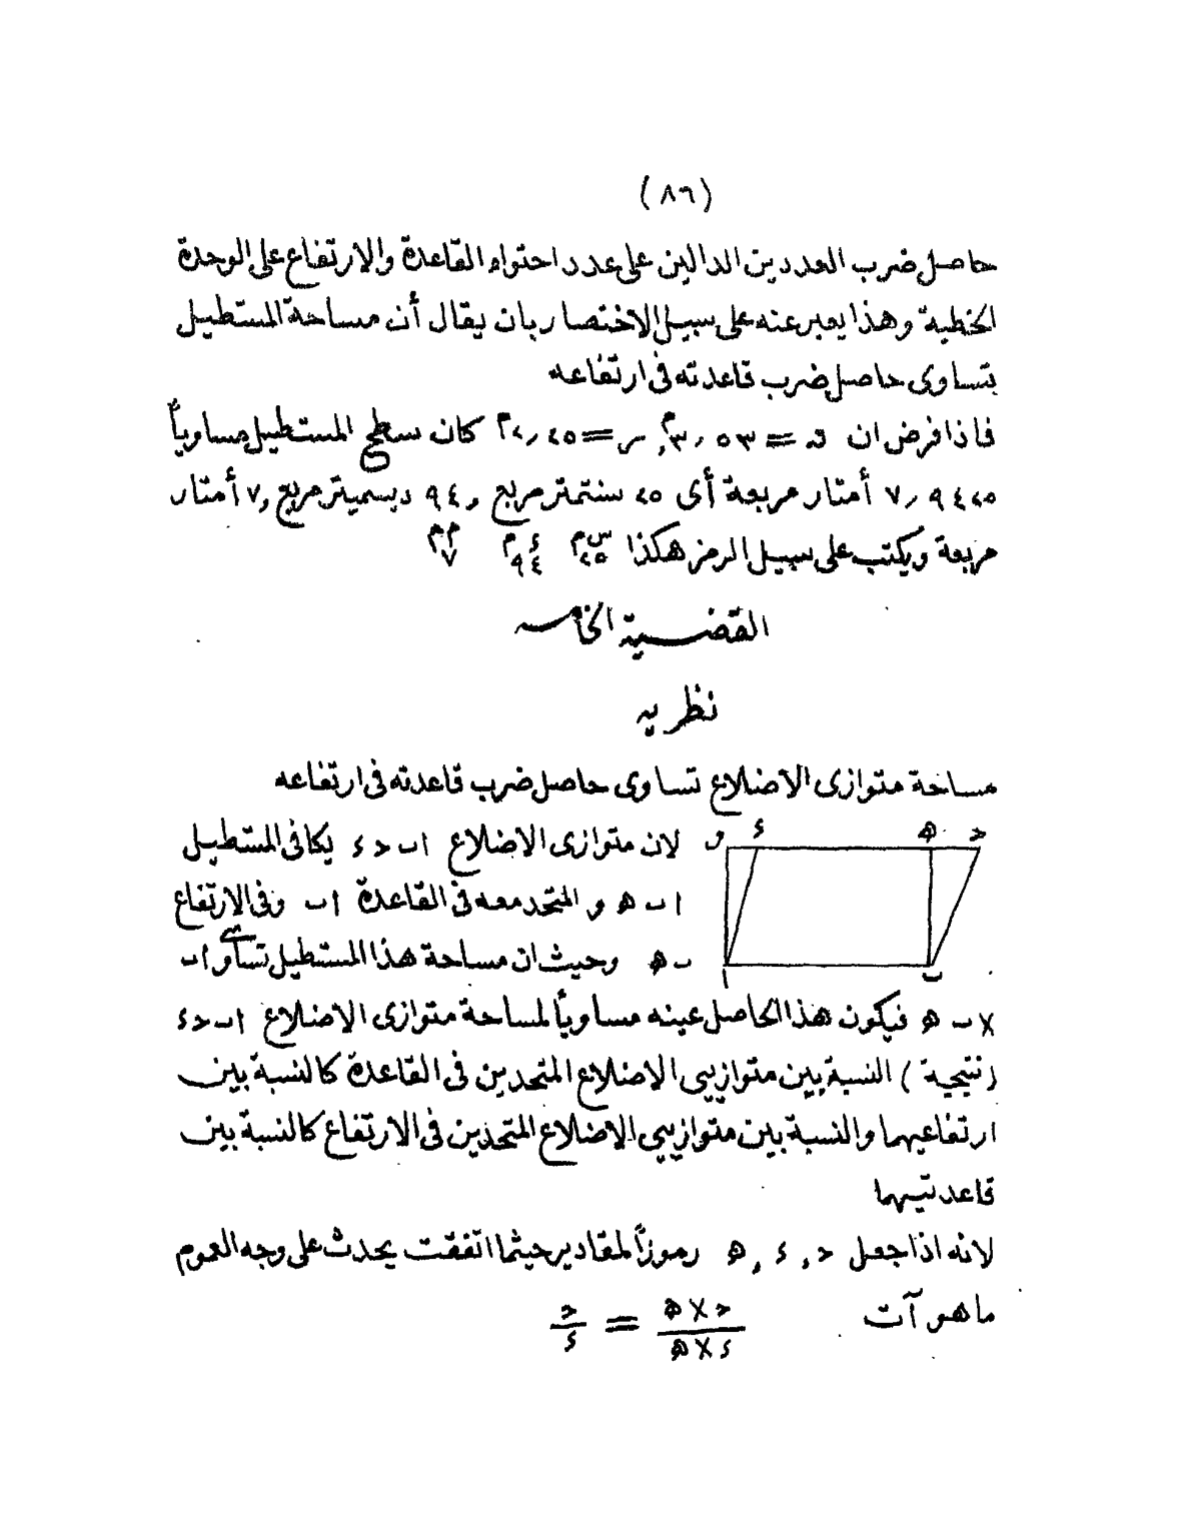 (٨٦)
حاصل ضرب العددين الدالين على عدد احتواء القاعدة والارتفاع على الوحدة
الخطية وهذا يعبر عنه على سبيل الاختصار بان يقال أن مساحة المستطيل
بتساوى حاصل ضرب قاعدته فى ارتفاعه
فاذا فرض ان ق = ٣٫٥٣م, ر = ٢٫٢٥م كان سطح المستطيل مساوياً
٧٫٩٤٢٥ أمتار مربعة أى ٢٥ سنتمتر مربع , ٩٤ ديسميتر مربع , ٧ أمتار
مربعة ويكتب على سبيل الرمز هكذا ٢٥ س‍م ٩٤ ءم ٧ مم
القضية الخامسه
نظريه
مساحة متوازى الاضلاع تساوى حاصل ضرب قاعدته فى ارتفاعه
و ء ه ح
لان متوازى الاضلاع ا ب ح ء يكافى المستطيل
ا ب ه و المتحد معه فى القاعدة ا ب وفى الارتفاع
ب ه وحيث ان مساحة هذا المستطيل تساوى ا ب
ا ب
× ب ه فيكون هذا الحاصل عينه مساوياً لمساحة متوازى الاضلاع ا ب ح ء
(نتيجية) النسبة بين متوازيى الاضلاع المتحدين فى القاعدة كالنسبة بين
ارتفاعيهما والنسبة بين متوازيى الاضلاع المتحدين فى الارتفاع كالنسبة بين
قاعدتيهما
لانه اذا جعل ح , ء , ه رموزاً لمقادير حيثما اتفقت يحدث على وجه العموم
ما هو آت ح × ه / ء × ه = ح / ء